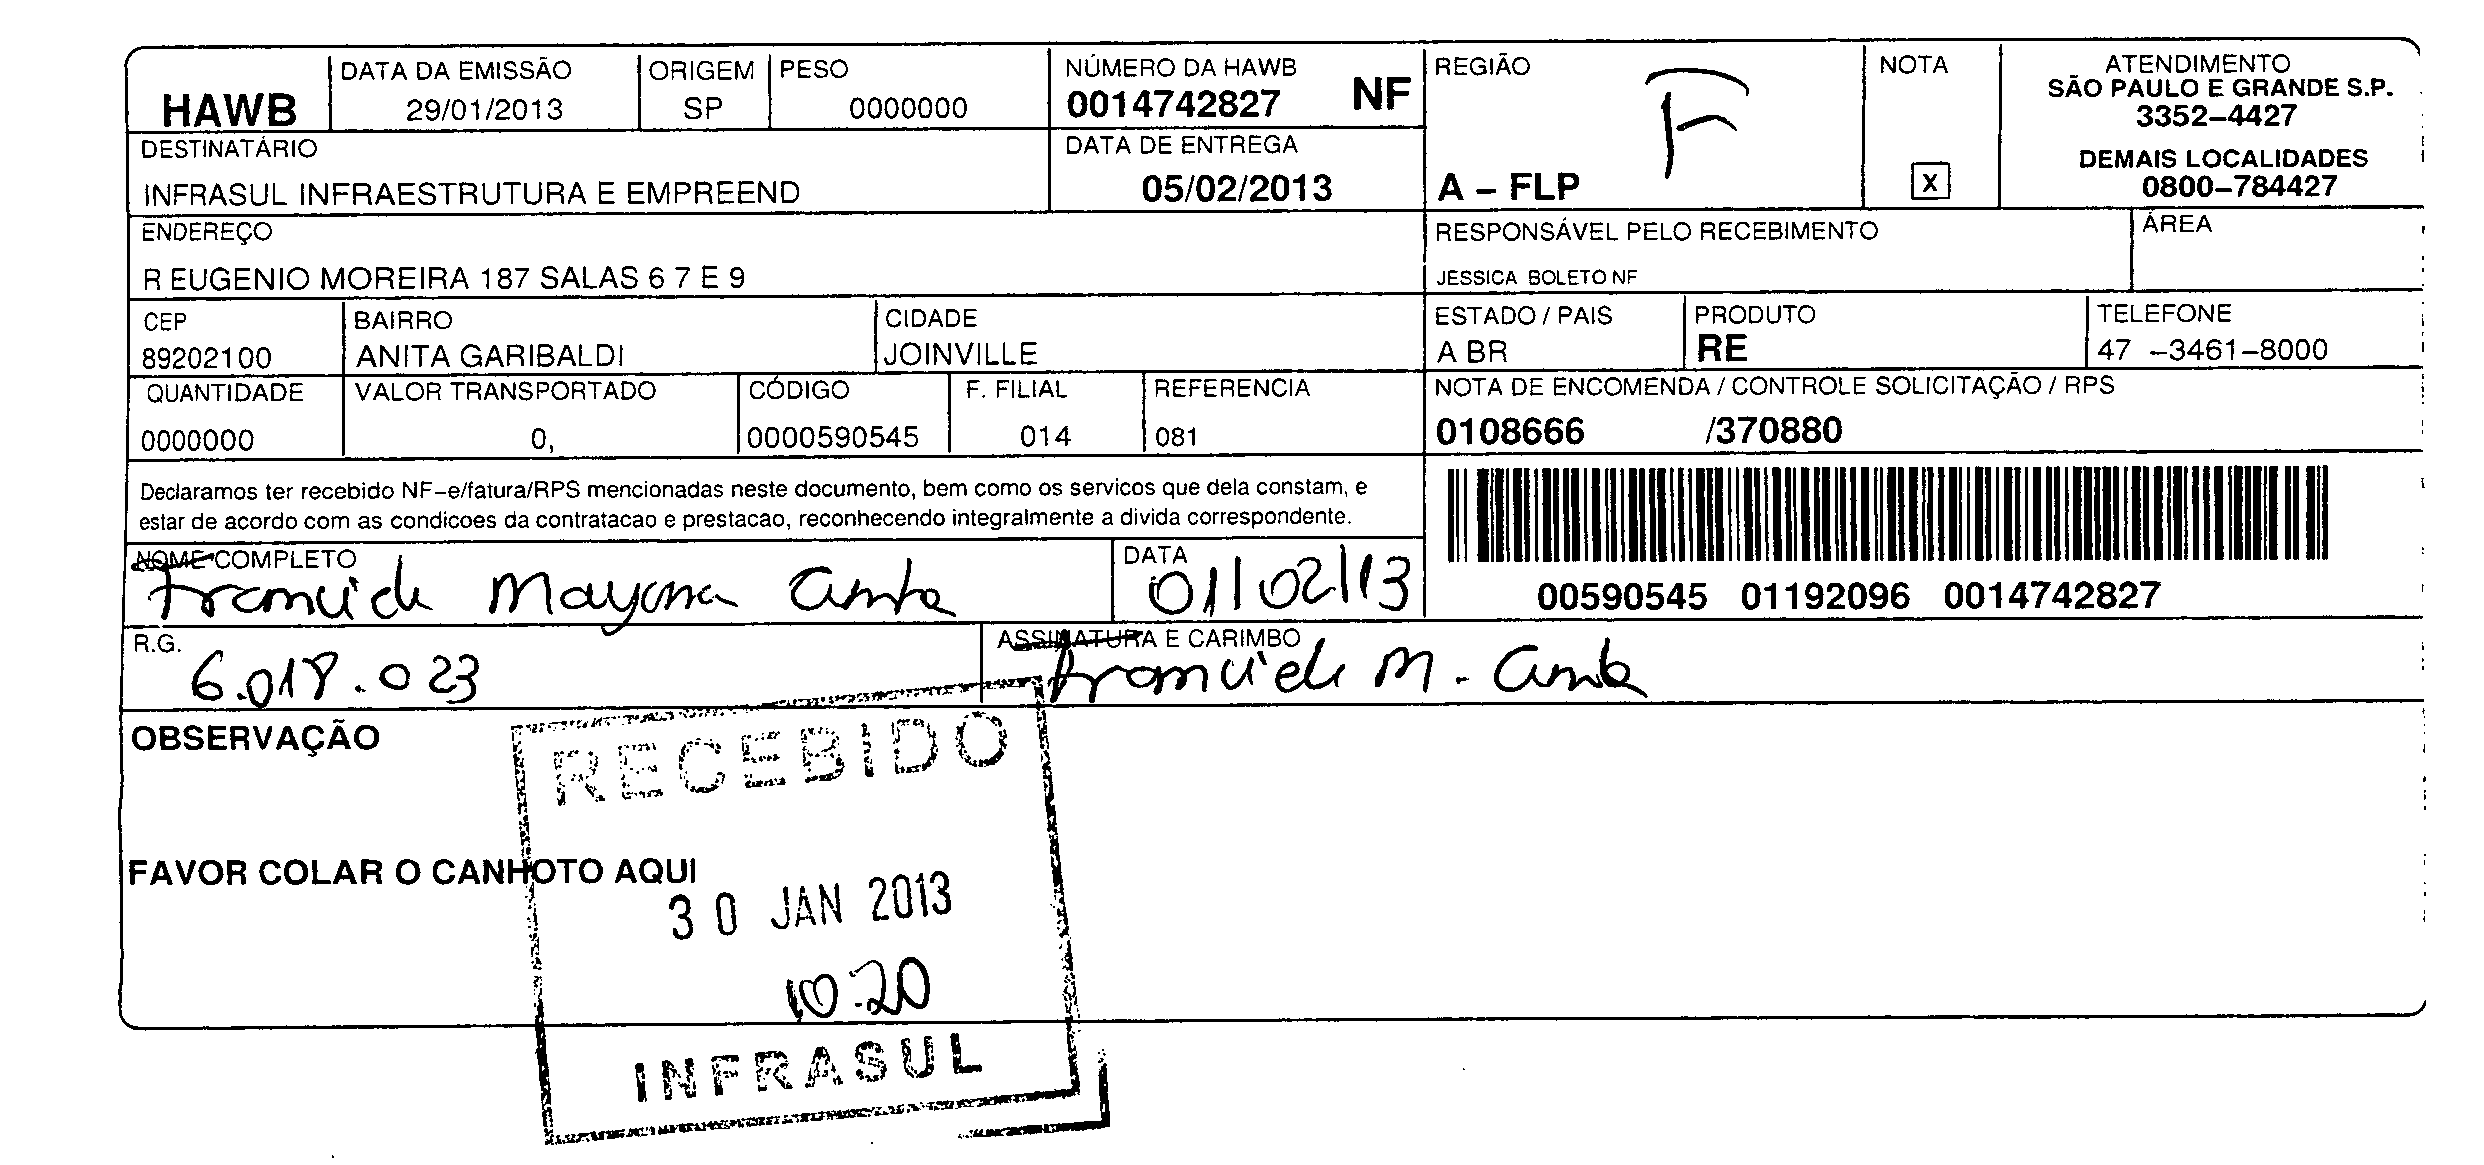 HAWB
DATA DA EMISSÃO
29/01/2013
ORIGEM
SP
PESO
0000000
NÚMERO DA HAWB
0014742827 NF
REGIÃO
F
A – FLP
NOTA
X
ATENDIMENTO
SÃO PAULO E GRANDE S.P.
3352–4427
DEMAIS LOCALIDADES
0800–784427
DESTINATÁRIO
INFRASUL INFRAESTRUTURA E EMPREEND
DATA DE ENTREGA
05/02/2013
ENDEREÇO
R EUGENIO MOREIRA 187 SALAS 6 7 E 9
RESPONSÁVEL PELO RECEBIMENTO
JESSICA BOLETO NF
ÁREA
CEP
89202100
BAIRRO
ANITA GARIBALDI
CIDADE
JOINVILLE
ESTADO / PAIS
A BR
PRODUTO
RE
TELEFONE
47 –3461–8000
QUANTIDADE
0000000
VALOR TRANSPORTADO
0,
CÓDIGO
0000590545
F. FILIAL
014
REFERENCIA
081
NOTA DE ENCOMENDA / CONTROLE SOLICITAÇÃO / RPS
0108666 /370880
Declaramos ter recebido NF–e/fatura/RPS mencionadas neste documento, bem como os servicos que dela constam, e
estar de acordo com as condicoes da contratacao e prestacao, reconhecendo integralmente a divida correspondente.
00590545 01192096 0014742827
NOME COMPLETO
Mayara
DATA
01/02/13
R.G.
6.018.023
ASSINATURA E CARIMBO
M.
OBSERVAÇÃO
RECEBIDO
FAVOR COLAR O CANHOTO AQUI
30 JAN 2013
10:20
INFRASUL